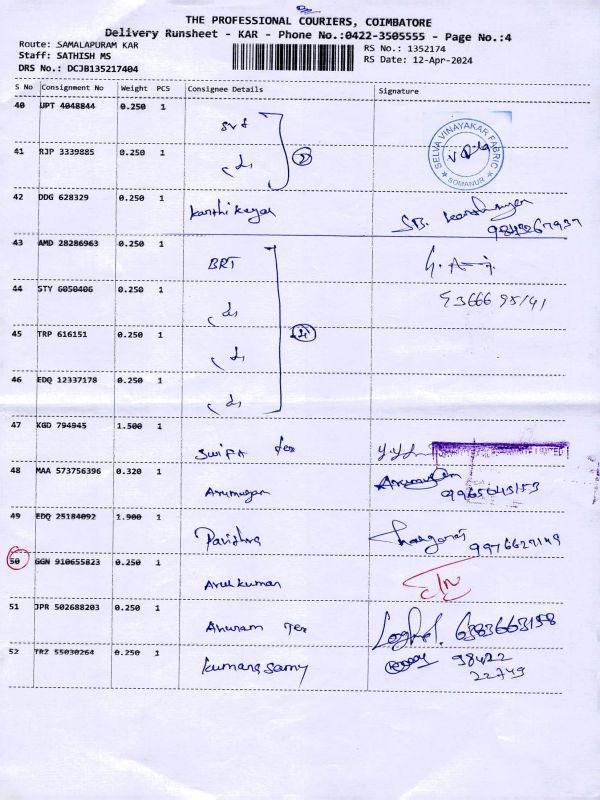 THE PROFESSIONAL COURIERS, COIMBATORE
Delivery Runsheet - KAR - Phone No.:0422-3505555 - Page No.:4
Route: SAMALAPURAM KAR
Staff: SATHISH MS
DRS No.: DCJB135217404
RS No.: 1352174
RS Date: 12-Apr-2024
S No Consignment No Weight PCS Consignee Details Signature
40 UPT 4048844 0.250 1
41 RJP 3339885 0.250 1
SELVA VINAYAKAR FABRIC
SOMANUR
42 DDG 628329 0.250 1 Karthikeyan
43 AMD 28286963 0.250 1 BRT
44 STY 6050406 0.250 1
45 TRP 616151 0.250 1
46 EDQ 12337178 0.250 1
47 KGD 794945 1.500 1 Swift Tex
48 MAA 573756396 0.320 1 Arumugam
49 EDQ 25184092 1.900 1 Pavithra
9976629149
50 GGN 910655823 0.250 1 Arulkumar
51 JPR 502688203 0.250 1 Anuram Tex
6383663158
52 TRZ 55030264 0.250 1 Kumarasamy
98422
22749